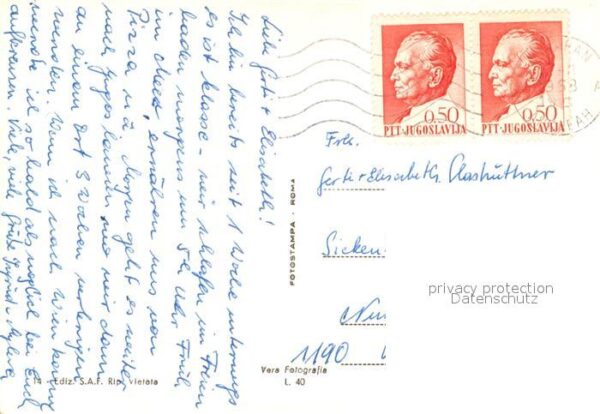 Liebe Gerti + Elisabeth!
Ich bin bereits seit 1 Woche unterwegs
es ist klasse - wir schlafen im Freien
baden morgens um 5h oder Früh,
im Meer, ernähren uns von
Pizza u.ä. Morgen geht es weiter
nach Jugoslawien wo wir dann
an einem Ort 3 Wochen verbringen
werden. Wenn ich nach Wien komme
werde ich so bald als möglich bei Euch
aufkreuzen. Viele, viele Grüße
0,50
PTT·JUGOSLAVIJA
0,50
PTT·JUGOSLAVIJA
Frls.
Gerti + Elisabeth
Sicken-
1190
FOTOSTAMPA - ROMA
privacy protection
Datenschutz
14 - Ediz. S.A.F. Rip. vietata
Vera Fotografia
L. 40